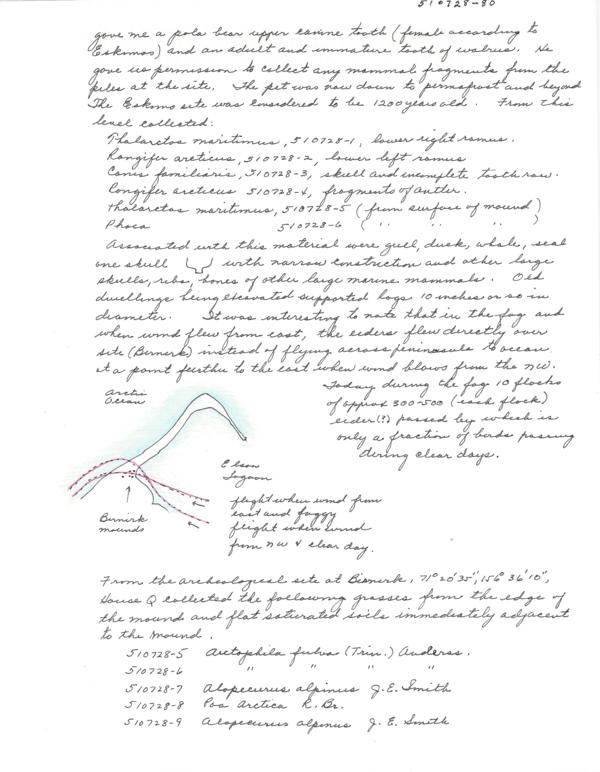 510728-80
gave me a pola bear upper canine tooth (female according to
Eskimos) and an adult and immature tooth of walrus. He
gave us permission to collect any mammal fragments from the
piles at the site. The pit was now down to permafrost and beyond
The Eskimo site was considered to be 1200 years old. From this
level collected:
Thalarctos maritimus, 510728-1, lower right ramus.
Rangifer arcticus, 510728-2, lower left ramus
Canis familiaris, 510728-3, skull and incomplete tooth row.
Rangifer arcticus 510728-4, fragments of antler.
Thalarctos maritimus, 510728-5 (from surface of mound)
Phoca 510728-6 ( " " " " )
Associated with this material were gull, duck, whale, seal
one skull with narrow constriction and other large
skulls, ribs, bones of other large marine mammals. Old
dwellings being excavated supported logs 10 inches or so in
diameter. It was interesting to note that in the fog and
when wind flew from east, the eiders flew directly over
site (Birnirk) instead of flying across peninsula to ocean
at a point further to the east when wind blows from the NW.
Today during the fog 10 flocks
of approx 300-500 (each flock)
eider(?) passed by which is
only a fraction of birds passing
during clear days.
Arctic
Ocean
Elson
Lagoon
Birnirk
mounds
flight when wind from
east and foggy
flight when wind
from NW & clear day.
From the archeological site at Birnirk, 71° 20' 35", 156° 36' 10",
House Q collected the following grasses from the edge of
the mound and flat saturated soils immediately adjacent
to the mound.
510728-5 Arctophila fulva (Trin.) Anderss.
510728-6 " " " "
510728-7 Alopecurus alpinus J.E. Smith
510728-8 Poa Arctica R. Br.
510728-9 Alopecurus alpinus J. E. Smith